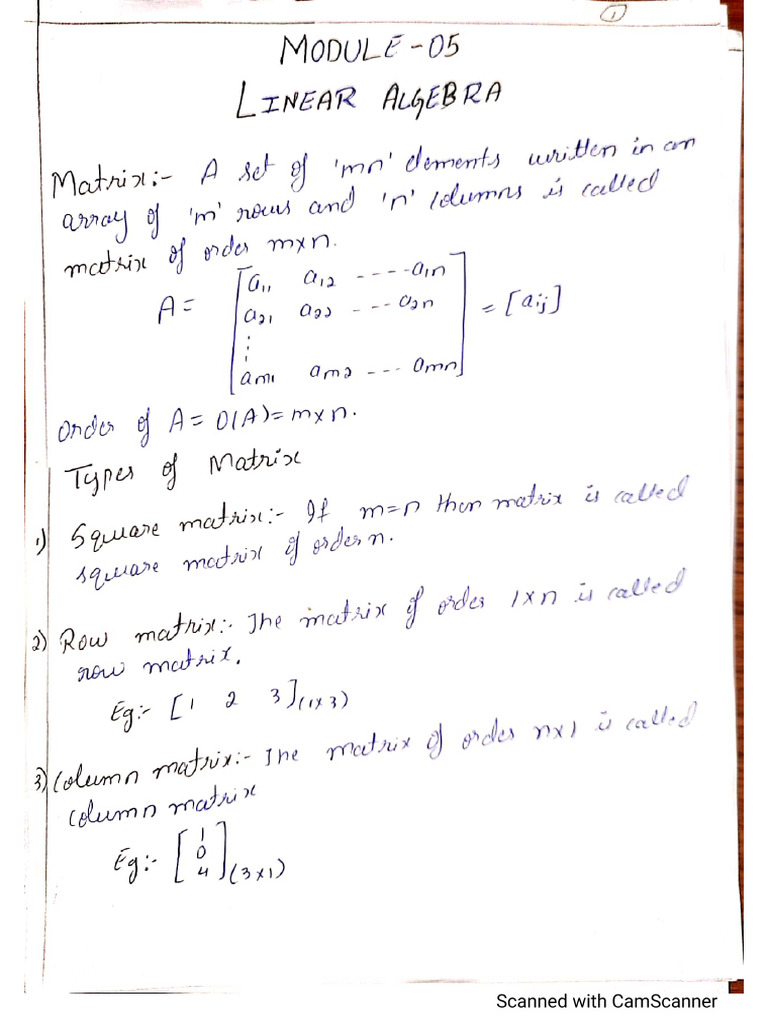 1
MODULE-05
LINEAR ALGEBRA
Matrix:- A set of 'mn' elements written in an
array of 'm' rows and 'n' columns is called
matrix of order m×n.
A = [a11 a12 ----a1n
a21 a22 --- a2n
⋮
am1 am2 --- amn] = [aij]
Order of A = O(A) = m×n.
Types of Matrix
1) Square matrix:- If m=n then matrix is called
square matrix of order n.
2) Row matrix:- The matrix of order 1×n is called
row matrix.
Eg:- [1 2 3](1×3)
3) Column matrix:- The matrix of order n×1 is called
column matrix
Eg:- [1
0
4](3×1)
Scanned with CamScanner